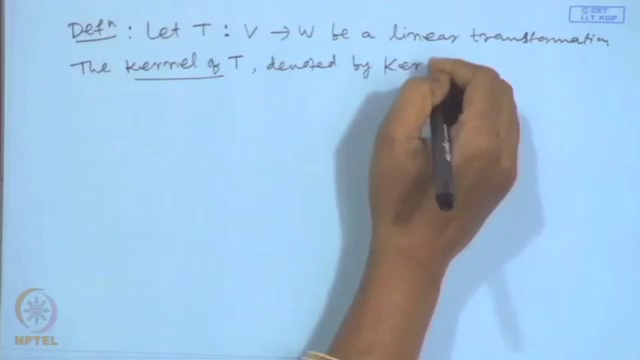 © CET
I.I.T. KGP
Defⁿ : Let T : V → W be a linear transformation.
The Kernel of T, denoted by Ker
NPTEL